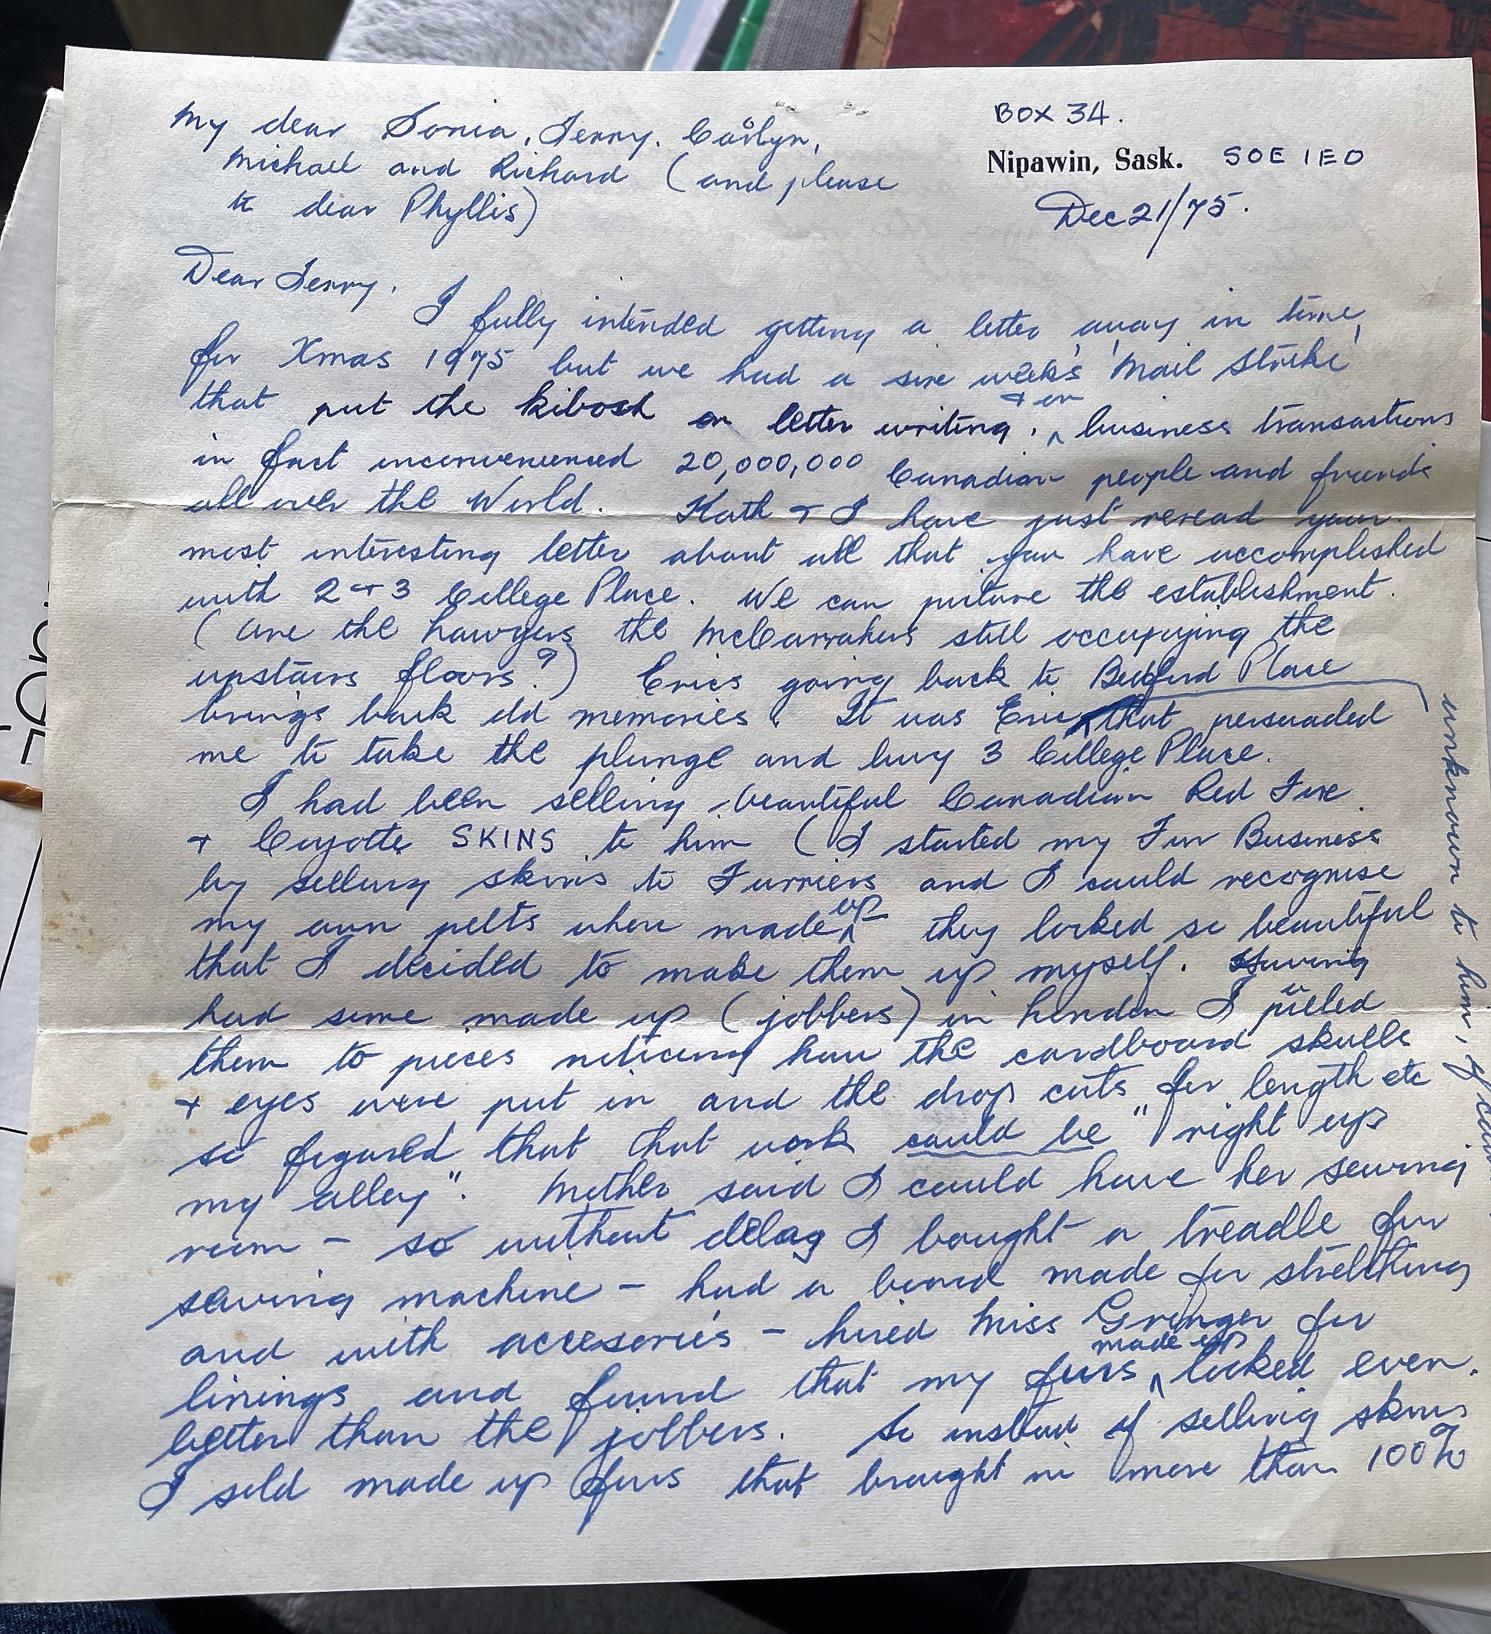 BOX 34.
Nipawin, Sask. S0E 1E0
Dec 21/75.
My dear Sonia, Terry, Carlyn,
Michael and Richard (and please
to dear Phyllis)
Dear Terry.
I fully intended getting a letter away in time
for Xmas 1975 but we had a six week's 'Mail Strike'
that put the kibosh on letter writing, + on business transactions
in fact inconvenienced 20,000,000 Canadian people and friends
all over the World. Kath + I have just reread your
most interesting letter about all that you have accomplished
with 2 + 3 College Place. We can picture the establishment.
(are the the McCarrahers still occupying the
upstairs floors?) Erics going back to Bedford Place
brings back old memories. It was Eric, that persuaded
me to take the plunge and buy 3 College Place.
unknown to him, of
I had been selling beautiful Canadian Red Fox
+ Coyotte SKINS to him (I started my Fur Business
by selling skins to Furriers and I could recognise
my own pelts when made up they looked so beautiful
that I decided to make them up myself. Having
had some made up (jobbers) in London I pulled
them to pieces noticing how the cardboard skulls
+ eyes were put in and the drop cuts for length etc
so figured that that work could be "right up
my alley". Mother said I could have her sewing
room – so without delay I bought a treadle fur
sewing machine – had a board made for stretching
and with accesories – hired Miss Grainger for
linings and found that my furs made up looked even
better than the jobbers. So instead of selling skins
I sold made up furs that brought in more than 100%